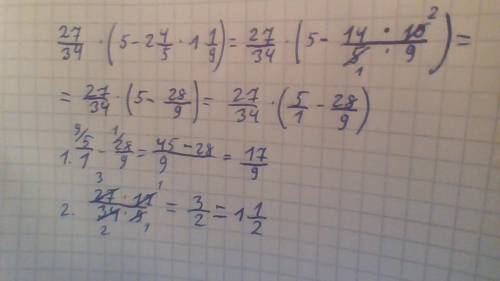 27/34 · (5 - 2 4/5 · 1 1/9) = 27/34 · (5 - 14 · 10 2/5 1 · 9) =
= 27/34 · (5 - 28/9) = 27/34 · (5/1 - 28/9)
1. 9/ 5/1 - 1/ 28/9 = 45 - 28/9 = 17/9
2. 3 27 · 17 1/34 2 · 9 1 = 3/2 = 1 1/2